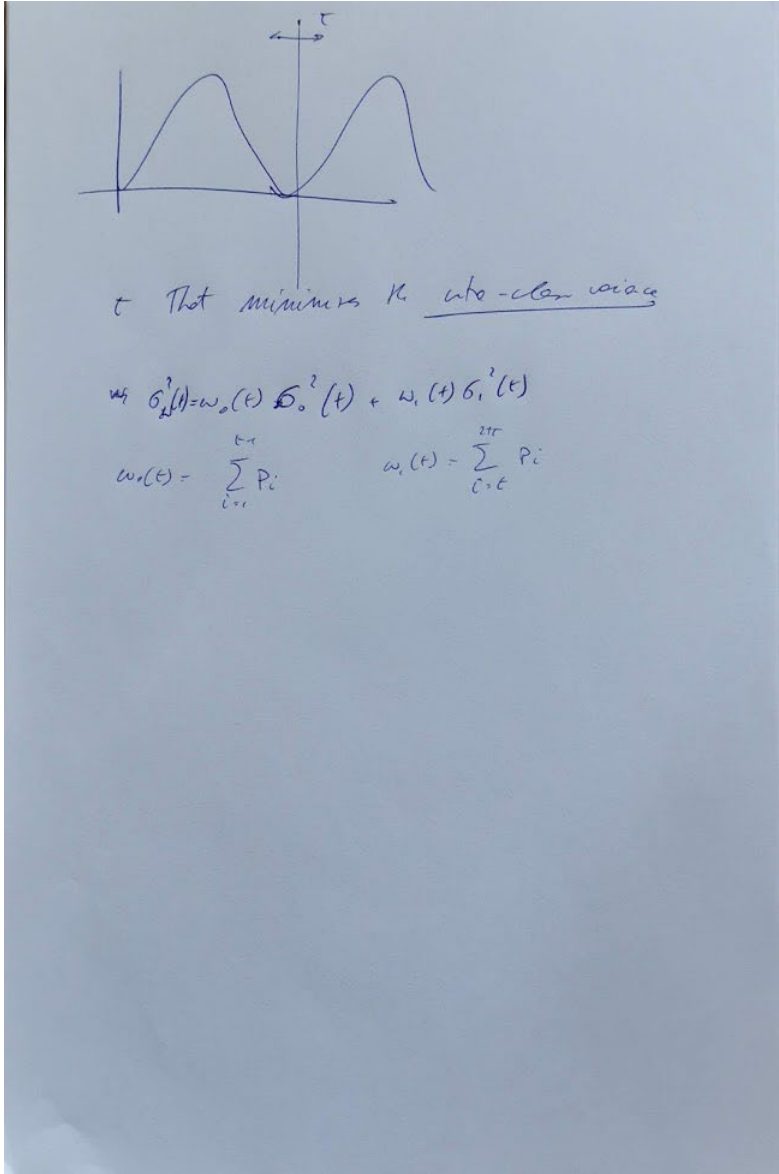 τ
t That minimizes the intra-class variance
σ²w(t)=ω₀(t) σ₀²(t) + ω₁(t) σ₁²(t)
ω₀(t) = ∑ᵢ₌₁ᵗ⁻¹ Pi ω₁(t) = ∑ᵢ₌ₜ²⁵⁵ Pi